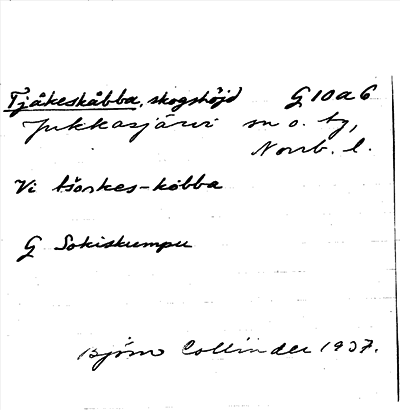 Tjåkeskåbba, skogshöjd G 10 a 6
Jukkasjärvi sn o. tg,
Norrb. l.
Vi tšoɒkes-kobba
G Sokiskumpu
Björn Collinder 1937.